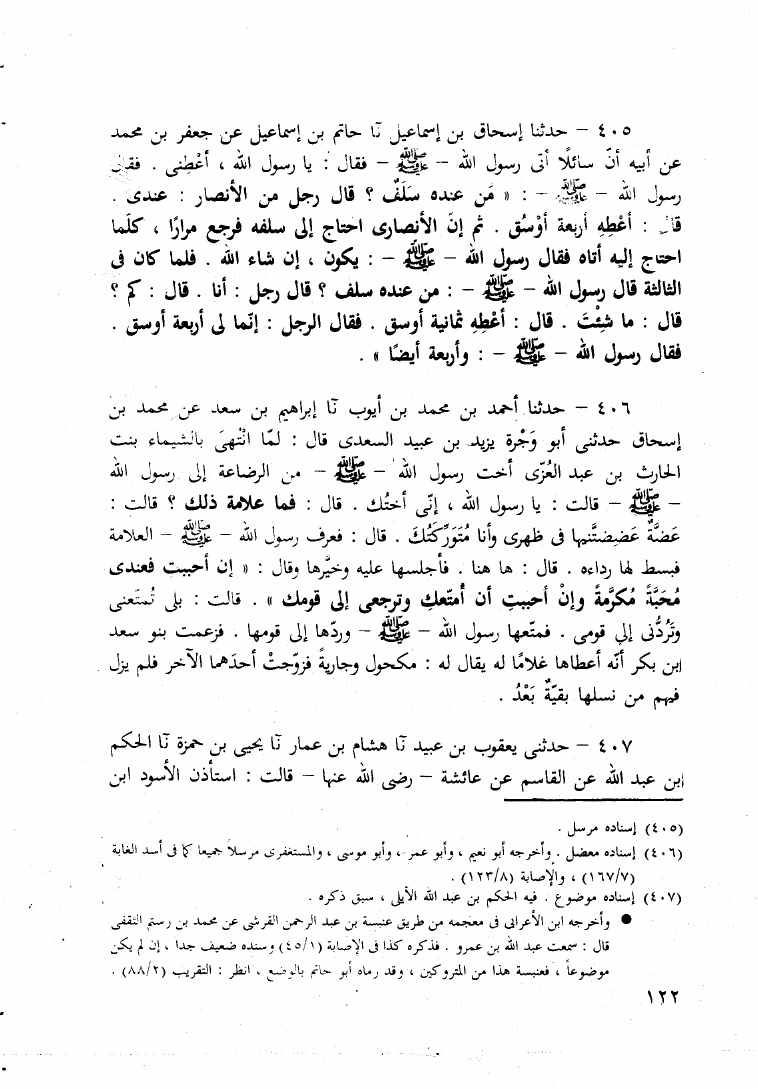 ٤٠٥ – حدثنا إسحاق بن إسماعيل نا حاتم بن إسماعيل عن جعفر بن محمد
عن أبيه أنّ سائلًا أتى رسول الله – ﷺ – فقال : يا رسول الله ، أعْطِنى . فقال
رسول الله – ﷺ – : « مَن عنده سَلَفٌ ؟ قال رجل من الأنصار : عندى .
قال : أعْطِهِ أربعة أوْسُق . ثم إنّ الأنصارى احتاج إلى سلفه فرجع مرارًا ، كلّما
احتاج إليه أتاه فقال رسول الله – ﷺ – : يكون ، إن شاء الله . فلما كان فى
الثالثة قال رسول الله – ﷺ – : من عنده سلف ؟ قال رجل : أنا . قال : كم ؟
قال : ما شِئْتَ . قال : أعْطِهِ ثمانية أوسق . فقال الرجل : إنّما لى أربعة أوسق .
فقال رسول الله – ﷺ – : وأربعة أيضًا » .
٤٠٦ – حدثنا أحمد بن محمد بن أيوب نا إبراهيم بن سعد عن محمد بن
إسحاق حدثنى أبو وَجْرة يزيد بن عبيد السعدى قال : لمّا انْتُهىَ بالشيماء بنت
الحارث بن عبد العُزّى أخت رسول الله – ﷺ – من الرضاعة إلى رسول الله
– ﷺ – قالت : يا رسول الله ، إنّى أختُك . قال : فما علامة ذلك ؟ قالت :
عَضَّةٌ عَضِضتَّنِيها فى ظهرى وأنا مُتَوَرِّكَتُكَ . قال : فعرف رسول الله – ﷺ – العلامة
فبسط لها رداءه . قال : ها هنا . فأجلسها عليه وخيَّرها وقال : « إن أحببت فعندى
مُحَبَّةً مُكرَّمةً وإنْ أحببتِ أن أمتّعكِ وترجعى إلى قومك » . قالت : بلى تُمتّعنى
وتَرُدُّنى إلي قومى . فمتّعها رسول الله – ﷺ – وردّها إلى قومها . فزعمت بنو سعد
ابن بكر أنّه أعطاها غلامًا له يقال له : مكحول وجاريةً فزوّجتْ أحدَهما الآخر فلم يزل
فيهم من نسلها بقيّةٌ بَعْدُ .
٤٠٧ – حدثنى يعقوب بن عبيد نا هشام بن عمار نا يحيى بن حمزة نا الحكم
ابن عبد الله عن القاسم عن عائشة – رضى الله عنها – قالت : استأذن الأسود ابن
(٤٠٥) إسناده مرسل .
(٤٠٦) إسناده معضل . وأخرجه أبو نعيم ، وأبو عمر ، وأبو موسى ، والمستغفرى مرسلاً جميعا كما فى أسد الغابة
(١٦٧/٧) ، والإصابة (١٢٣/٨) .
(٤٠٧) إسناده موضوع . فيه الحكم بن عبد الله الأيلى ، سبق ذكره .
● وأخرجه ابن الأعرابى فى معجمه من طريق عنبسة بن عبد الرحمن القرشى عن محمد بن رستم الثقفى
قال : سمعت عبد الله بن عمرو . فذكره كذا فى الإصابة (٤٥/١) وسنده ضعيف جدا ، إن لم يكن
موضوعاً ، فعنبسة هذا من المتروكين ، وقد رماه أبو حاتم بالوضع ، انظر : التقريب (٨٨/٢) .
١٢٢